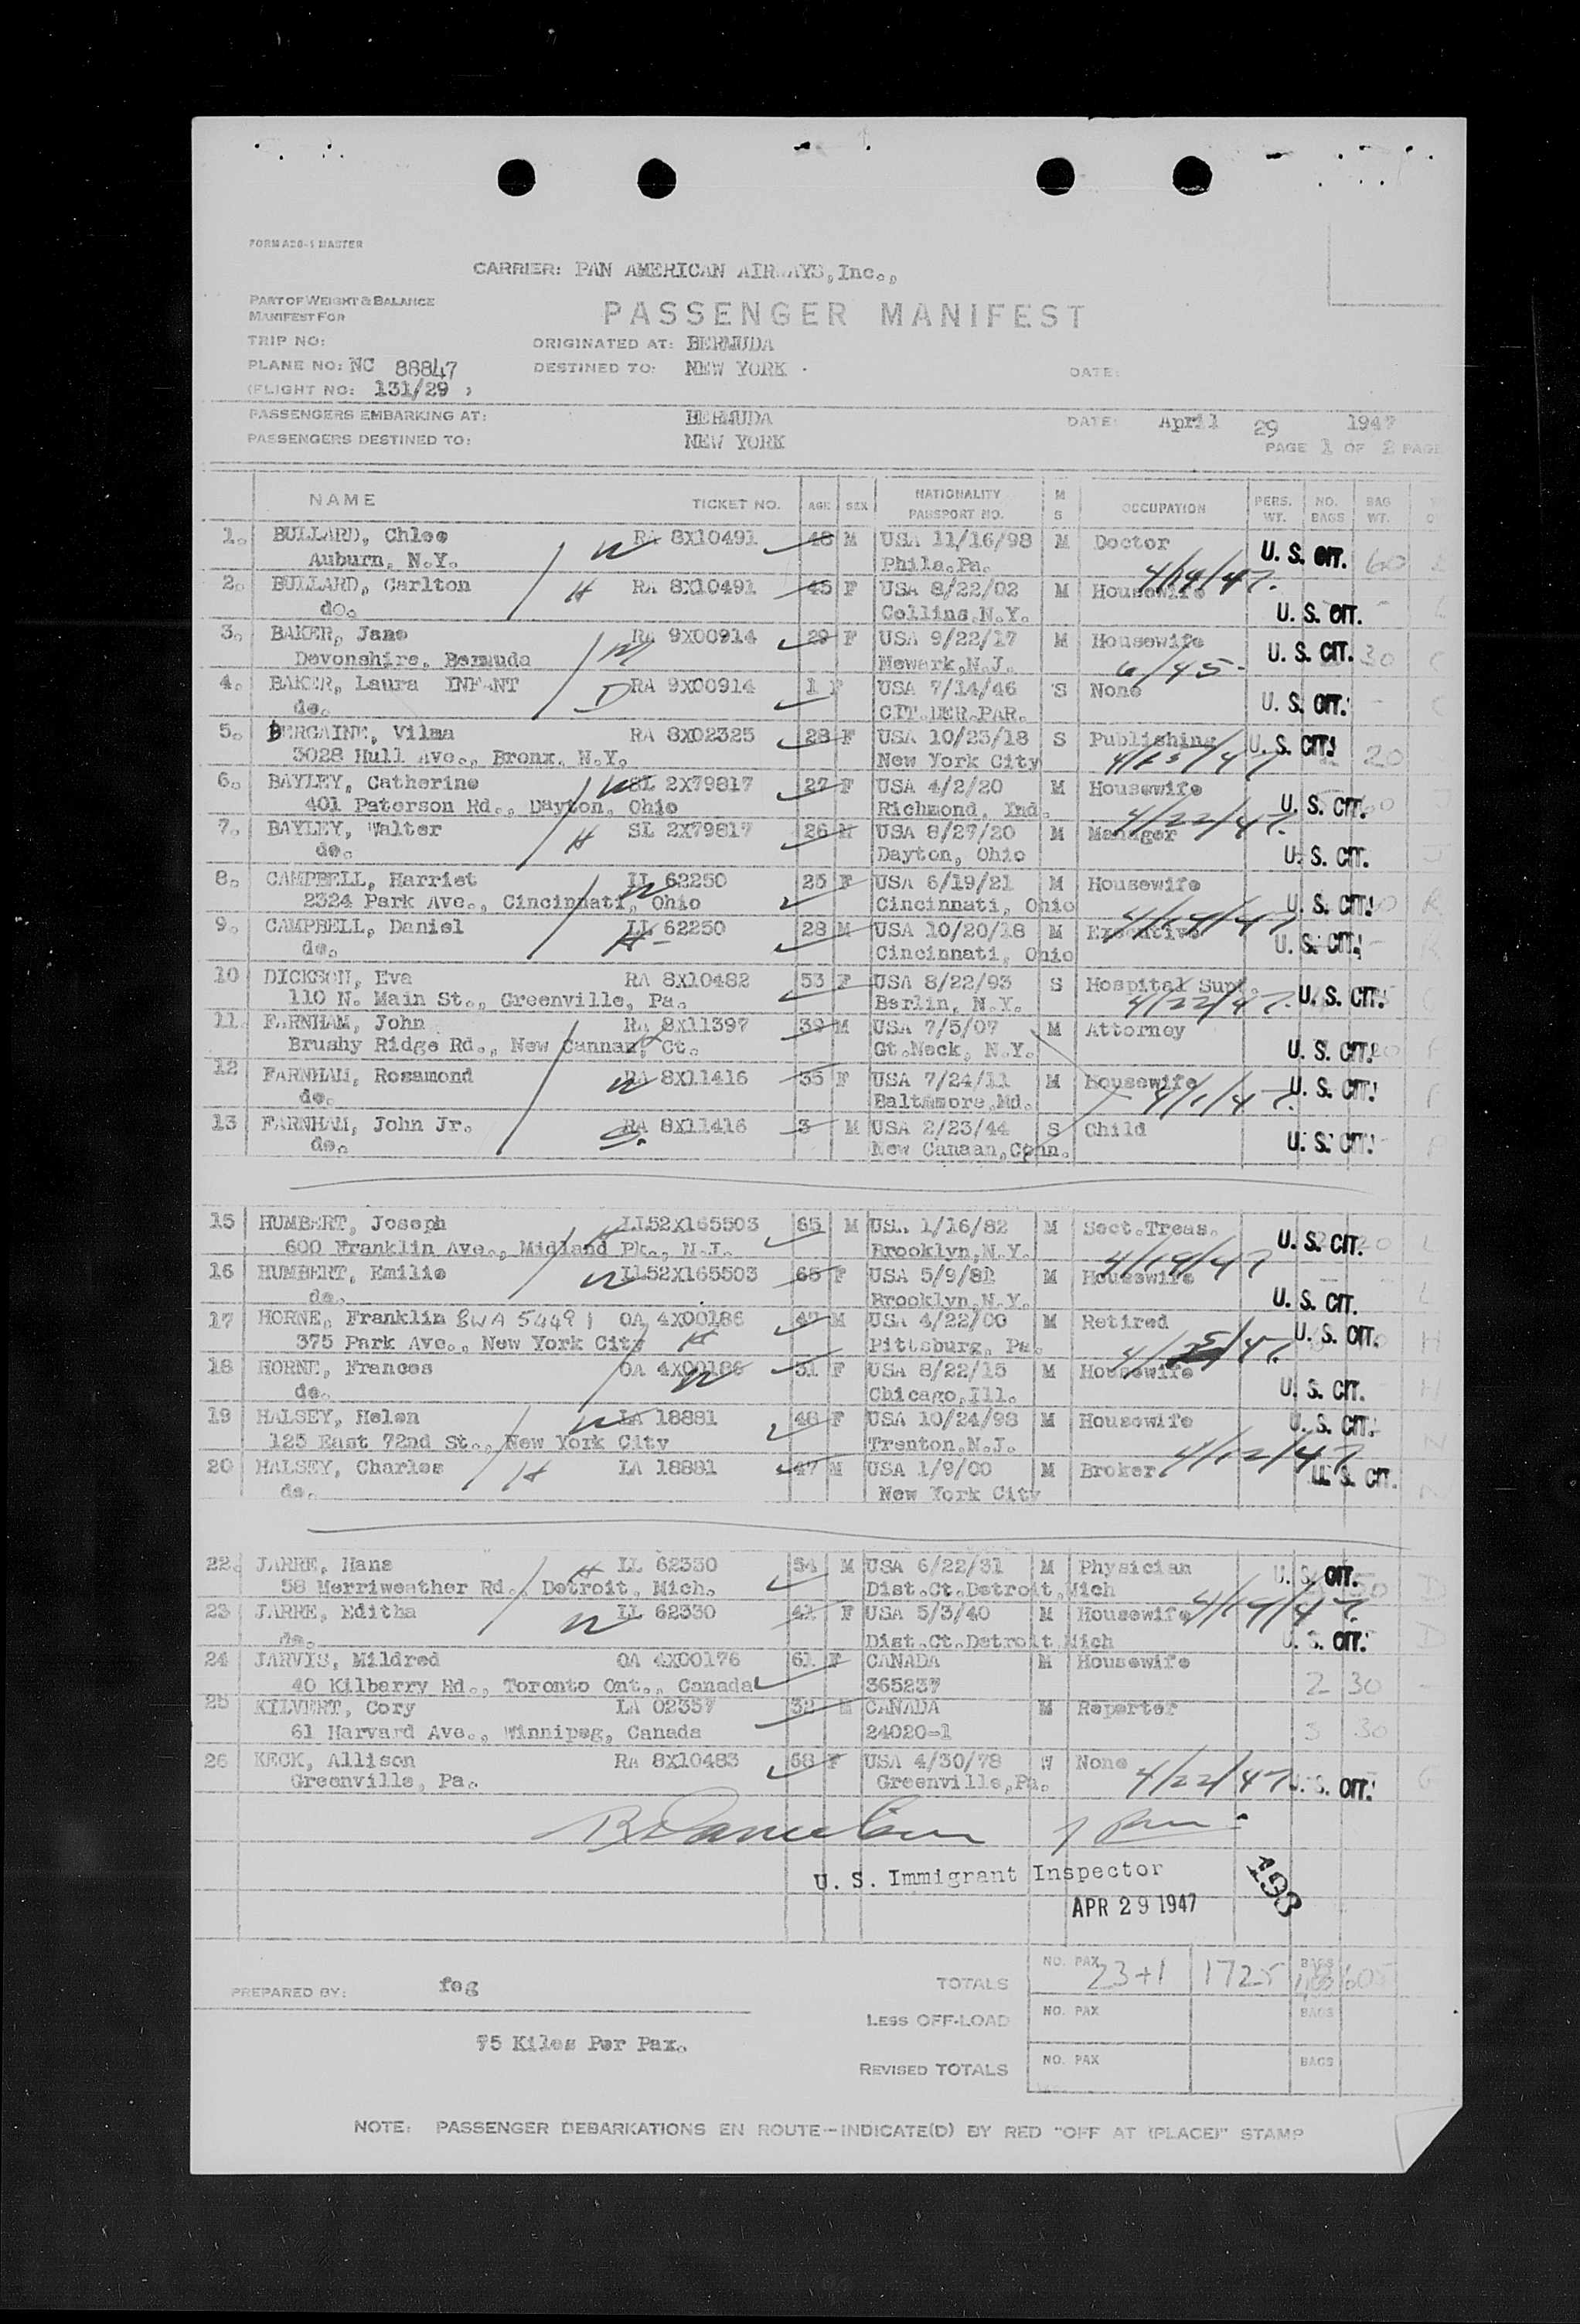 FORM A20-1 MASTER
CARRIER: PAN AMERICAN AIRWAYS, Inc.,
PART OF WEIGHT & BALANCE
MANIFEST FOR
PASSENGER MANIFEST
TRIP NO: ORIGINATED AT: BERMUDA
PLANE NO: NC 88847 DESTINED TO: NEW YORK DATE:
(FLIGHT NO: 131/29 )
PASSENGERS EMBARKING AT: BERMUDA DATE: April 29 1947
PASSENGERS DESTINED TO: NEW YORK
PAGE 1 OF 2 PAGE
NAME TICKET NO. AGE SEX NATIONALITY PASSPORT NO. M S OCCUPATION PERS. WT. NO. BAGS BAG WT.
1. BULLARD, Chloe RA 8X10491 48 M USA 11/16/98 M Doctor U. S. CIT. 60
Auburn, N.Y. Phila.Pa. 4/19/47.
2. BULLARD, Carlton H RA 8X10491 45 F USA 8/22/02 M Housewife
do. Collins,N.Y. U. S. CIT.
3. BAKER, Jane RA 9X00914 29 F USA 9/22/17 M Housewife U. S. CIT. 30
Devonshire, Bermuda Newark,N.J. 6/45.
4. BAKER, Laura INFANT D RA 9X00914 1 F USA 7/14/46 S None U. S. CIT.
do. CIT.DER.PAR.
5. BERGAINE, Vilma RA 8X02325 28 F USA 10/23/18 S Publishing U. S. CIT. 20
3028 Hull Ave., Bronx, N.Y. New York City
6. BAYLEY, Catherine SL 2X79817 27 F USA 4/2/20 M Housewife U. S. CIT.
401 Paterson Rd., Dayton, Ohio Richmond, Ind. 4/22/47.
7. BAYLEY, Walter H SL 2X79817 26 M USA 8/27/20 M Manager U. S. CIT.
do. Dayton, Ohio
8. CAMPBELL, Harriet LL 62250 25 F USA 6/19/21 M Housewife U. S. CIT.
2324 Park Ave., Cincinnati, Ohio Cincinnati, Ohio 4/19/47
9. CAMPBELL, Daniel H LL 62250 28 M USA 10/20/18 M Executive U. S. CIT.
do. Cincinnati, Ohio
10 DICKSON, Eva RA 8X10482 53 F USA 8/22/93 S Hospital Supt. U. S. CIT.
110 N. Main St., Greenville, Pa. Berlin, N.Y. 4/22/47.
11. FARNHAM, John RA 8X11397 39 M USA 7/5/07 M Attorney
Brushy Ridge Rd., New Cannan, Ct. Gt.Neck, N.Y. U. S. CIT.
12 FARNHAM, Rosamond RA 8X11416 35 F USA 7/24/11 M Housewife U. S. CIT.
do. Baltmmore,Md. 4/1/47.
13 FARNHAM, John Jr. RA 8X11416 3 M USA 2/23/44 S Child U. S. CIT.
do. New Canaan,Conn.
15 HUMBERT, Joseph H LL52X165503 65 M USA 1/16/82 M Sect.Treas. U. S. CIT.
600 Franklin Ave., Midland Pk., N.J. Brooklyn,N.Y. 4/19/47
16 HUMBERT, Emilie LL52X165503 65 F USA 5/9/81 M Housewife U. S. CIT.
do. Brooklyn,N.Y.
17 HORNE, Franklin BWA 54491 OA 4X00186 47 M USA 4/22/00 M Retired U. S. CIT.
375 Park Ave., New York City H Pittsburg, Pa.
18 HORNE, Frances OA 4X00186 31 F USA 8/22/15 M Housewife U. S. CIT.
do. Chicago,Ill.
19 HALSEY, Helen LA 18881 48 F USA 10/24/98 M Housewife U. S. CIT.
125 East 72nd St., New York City Trenton,N.J. 4/12/47
20 HALSEY, Charles H LA 18881 47 M USA 1/9/00 M Broker U. S. CIT.
do. New York City
22. JARRE, Hans H LL 62330 54 M USA 6/22/31 M Physician U. S. CIT.
58 Merriweather Rd., Detroit, Mich. Dist.Ct.Detroit,Mich
23 JARRE, Editha LL 62330 41 F USA 5/3/40 M Housewife 4/19/47.
do. Dist.Ct.Detroit,Mich U. S. CIT.
24 JARVIS, Mildred OA 4X00176 61 F CANADA M Housewife
40 Kilbarry Rd., Toronto Ont., Canada 365237 2 30
25 KILVERT, Cory LA 02357 32 M CANADA M Reporter
61 Harvard Ave., Winnipeg, Canada 24020-1 3 30
26 KECK, Allison RA 8X10483 68 F USA 4/30/78 W None 4/22/47 U. S. CIT.
Greenville, Pa. Greenville,Pa.
U. S. Immigrant Inspector
APR 29 1947
193
TOTALS NO. PAX 23+1 1725 BAGS 605
PREPARED BY: feg
LESS OFF-LOAD NO. PAX BAGS
75 Kilos Per Pax.
REVISED TOTALS NO. PAX BAGS
NOTE: PASSENGER DEBARKATIONS EN ROUTE—INDICATE(D) BY RED "OFF AT (PLACE)" STAMP